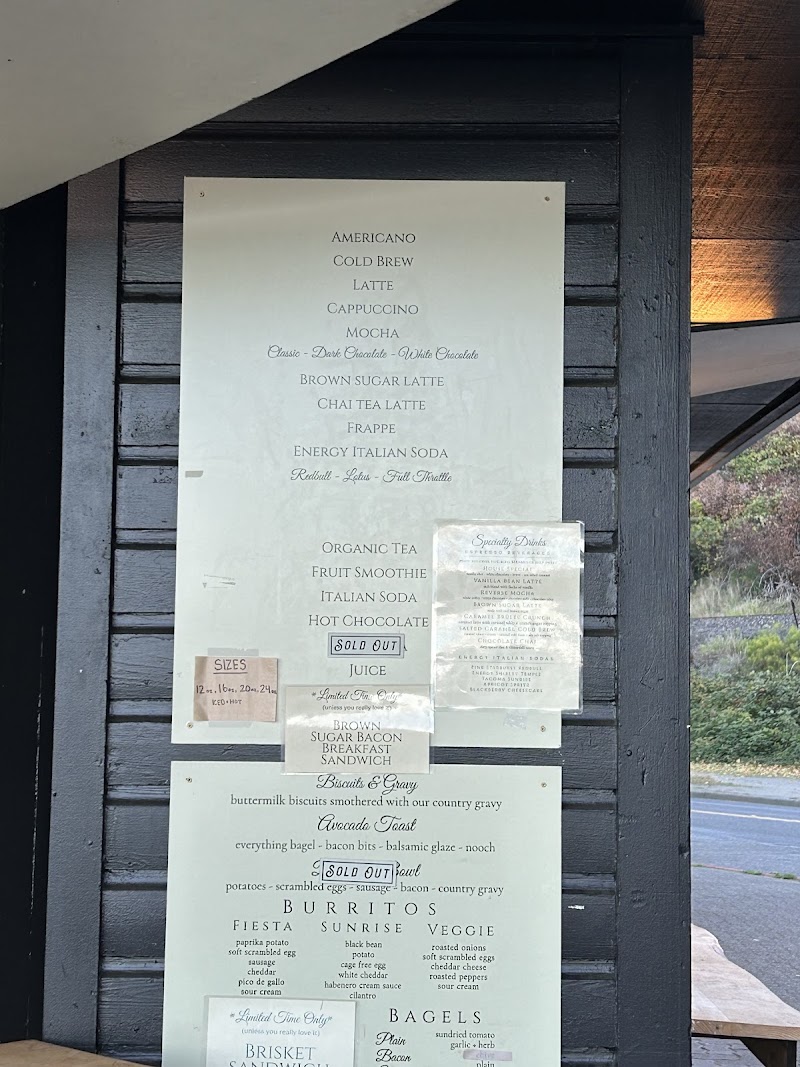 AMERICANO
COLD BREW
LATTE
CAPPUCCINO
MOCHA
Classic - Dark Chocolate - White Chocolate
BROWN SUGAR LATTE
CHAI TEA LATTE
FRAPPE
ENERGY ITALIAN SODA
Redbull - Lotus - Full Throttle
ORGANIC TEA
FRUIT SMOOTHIE
ITALIAN SODA
HOT CHOCOLATE
SOLD OUT
JUICE
SIZES
12oz, 16oz, 20oz, 24oz
ICED + HOT
Specialty Drinks
ESPRESSO BEVERAGES
HOUSE SPECIAL
VANILLA BEAN LATTE
REVERSE MOCHA
BROWN SUGAR LATTE
CARAMEL BRULEE CRUNCH
SALTED CARAMEL COLD BREW
CHOCOLATE CHAI
ENERGY ITALIAN SODAS
TACOMA SUNRISE
BLACKBERRY CHEESECAKE
*Limited Time Only*
(unless you really love it)
BROWN
SUGAR BACON
BREAKFAST
SANDWICH
Biscuits & Gravy
buttermilk biscuits smothered with our country gravy
Avocado Toast
everything bagel - bacon bits - balsamic glaze - nooch
SOLD OUT Bowl
potatoes - scrambled eggs - sausage - bacon - country gravy
BURRITOS
FIESTA
paprika potato
soft scrambled egg
sausage
cheddar
pico de gallo
sour cream
SUNRISE
black bean
potato
cage free egg
white cheddar
habenero cream sauce
cilantro
VEGGIE
roasted onions
soft scrambled eggs
cheddar cheese
roasted peppers
sour cream
*Limited Time Only*
(unless you really love it)
BRISKET
SANDWICH
BAGELS
Plain
Bacon
sundried tomato
garlic + herb
plain